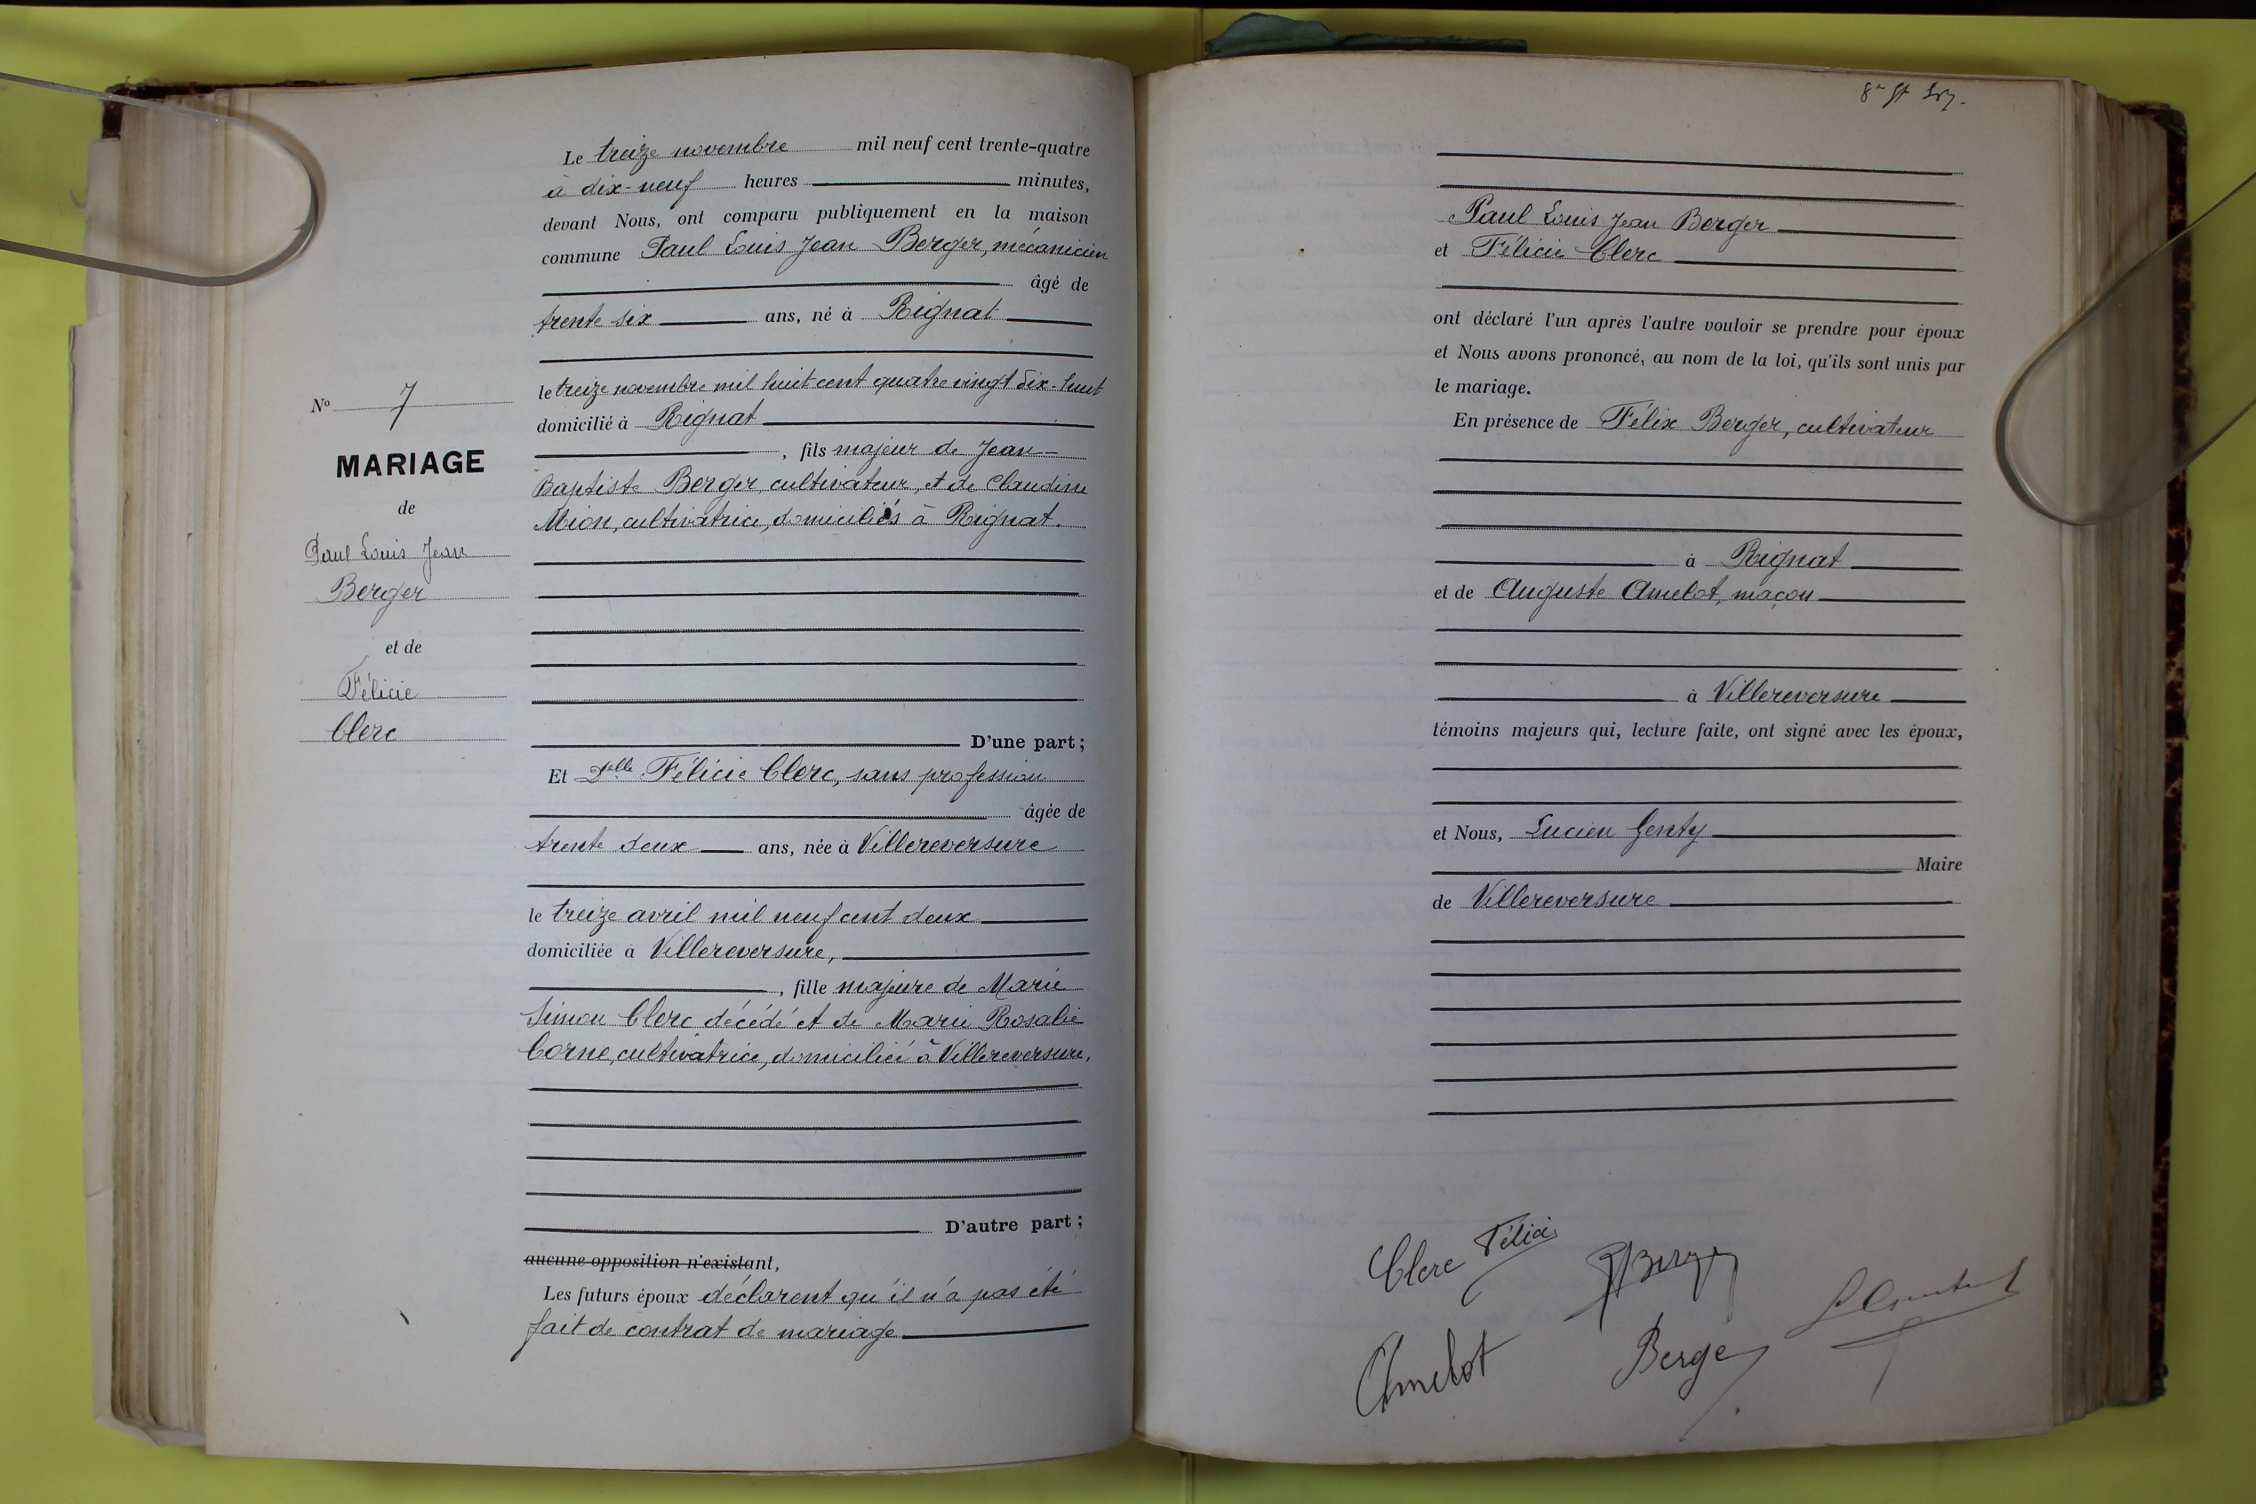 N° 7
MARIAGE
de
Paul Louis Jean
Berger
et de
Félicie
Clerc
Le treize novembre mil neuf cent trente-quatre
à dix-neuf heures minutes,
devant Nous, ont comparu publiquement en la maison
commune Paul Louis Jean Berger, mécanicien
âgé de
trente six ans, né à Rignat
le treize novembre mil huit cent quatre vingt dix-huit
domicilié à Rignat
, fils majeur de Jean-
Baptiste Berger, cultivateur, et de Claudine
Mion, cultivatrice, domiciliés à Rignat.
D'une part;
Et Delle Félicie Clerc, sans profession
âgée de
trente deux ans, née à Villereversure
le treize avril mil neuf cent deux
domiciliée à Villereversure,
, fille majeure de Marie
Simon Clerc décédé et de Marie Rosalie
Corne, cultivatrice, domiciliée à Villereversure,
D'autre part;
aucune opposition n'existant,
Les futurs époux déclarent qu'il n'a pas été
fait de contrat de mariage
Paul Louis Jean Berger
et Félicie Clerc
ont déclaré l'un après l'autre vouloir se prendre pour époux
et Nous avons prononcé, au nom de la loi, qu'ils sont unis par
le mariage.
En présence de Félix Berger, cultivateur
à Rignat
et de Auguste Amelot, maçon
à Villereversure
témoins majeurs qui, lecture faite, ont signé avec les époux,
et Nous, Lucien Genty
Maire
de Villereversure
Clerc Félicie
Berger
Amelot
Berger